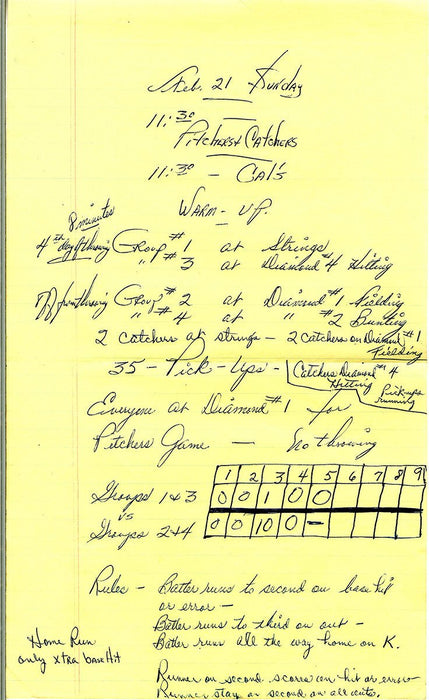 Feb. 21 - Sunday
11:30 -
Pitchers & Catchers
11:30 - Cal's
Warm-Up.
8 minutes
4th day of throwing Group #1 at Strings
" #3 at Diamond #4 Hitting
Off from throwing Group #2 at Diamond #1 Fielding
" #4 at " #2 Bunting
2 catchers at strings - 2 catchers on Diamond #1 Fielding
35 - Pick-Ups - Catchers Diamond #4 Hitting
Pick-ups running
Everyone at Diamond #1 for
Pitchers Game - No throwing
1 2 3 4 5 6 7 8 9
Groups 1 & 3 0 0 1 0 0
vs
Groups 2 & 4 0 0 10 0 -
Rules - Batter runs to second on base hit
or error -
Batter runs to third on out -
Batter runs all the way home on K.
Home Run
only xtra base Hit
Runner on second scores on hit or error -
Runner stay on second on all outs.